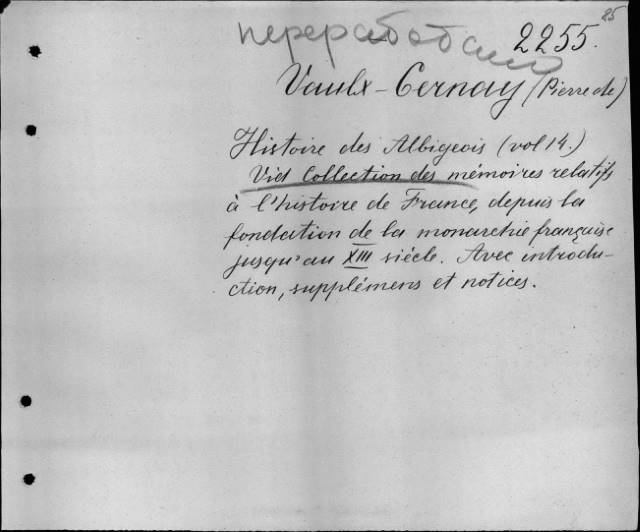 25
переработано 2255.
Vaulx-Cernay (Pierre de)
Histoire des Albigeois (vol 14.)
Vid Collection des mémoires relatifs
à l'histoire de France, depuis la
fondation de la monarchie française
jusqu'au XIII siécle. Avec introdu-
ction, supplémens et notices.